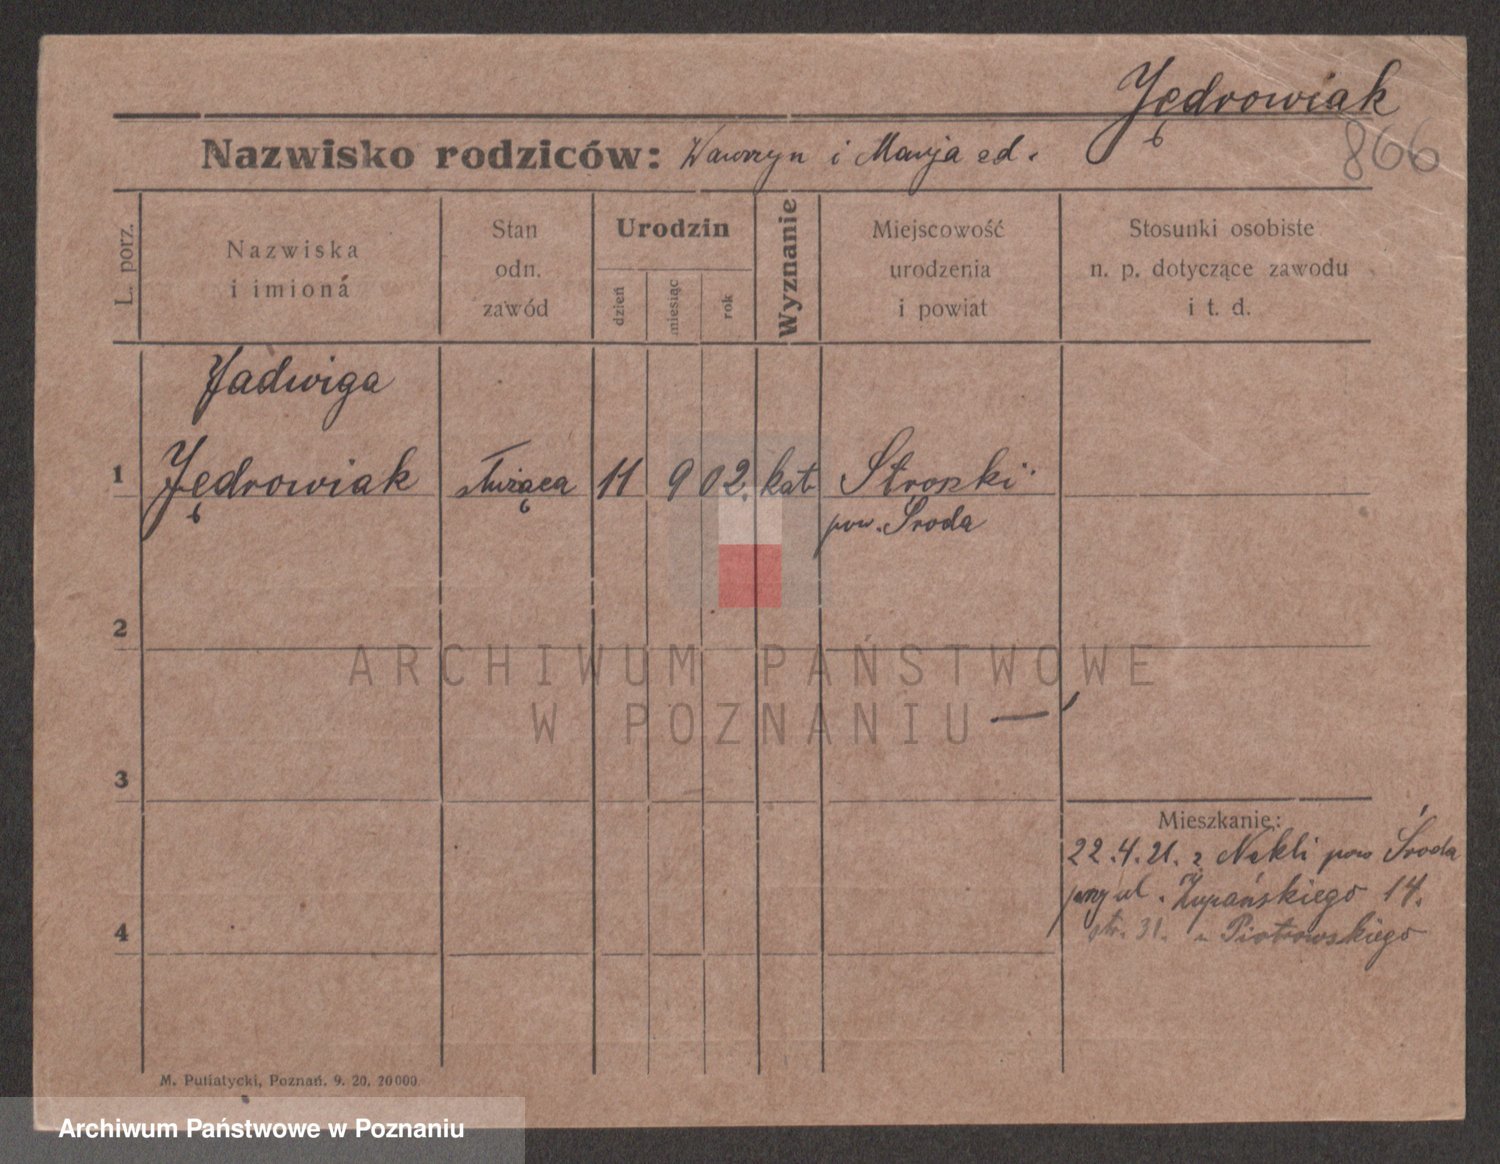 Jędrowiak
866
Nazwisko rodziców: Wawrzyn i Marja ed.
L. porz.
Nazwiska
i imioná
Stan
odn.
zawód
Urodzin
dzień
miesiąc
rok
Wyznanie
Miejscowość
urodzenia
i powiat
Stosunki osobiste
n. p. dotyczące zawodu
i t. d.
Jadwiga
1 Jędrowiak służąca 11 9 02. kat.
pow. Środa
2
ARCHIWUM PAŃSTWOWE
W POZNANIU
3
Mieszkanie:
22.4.21. z Nekli pow Środa
przy ul. Żupańskiego 14.
4
str. 31. Piotrowskiego
M. Putiatycki, Poznań. 9. 20. 20000.
Archiwum Państwowe w Poznaniu